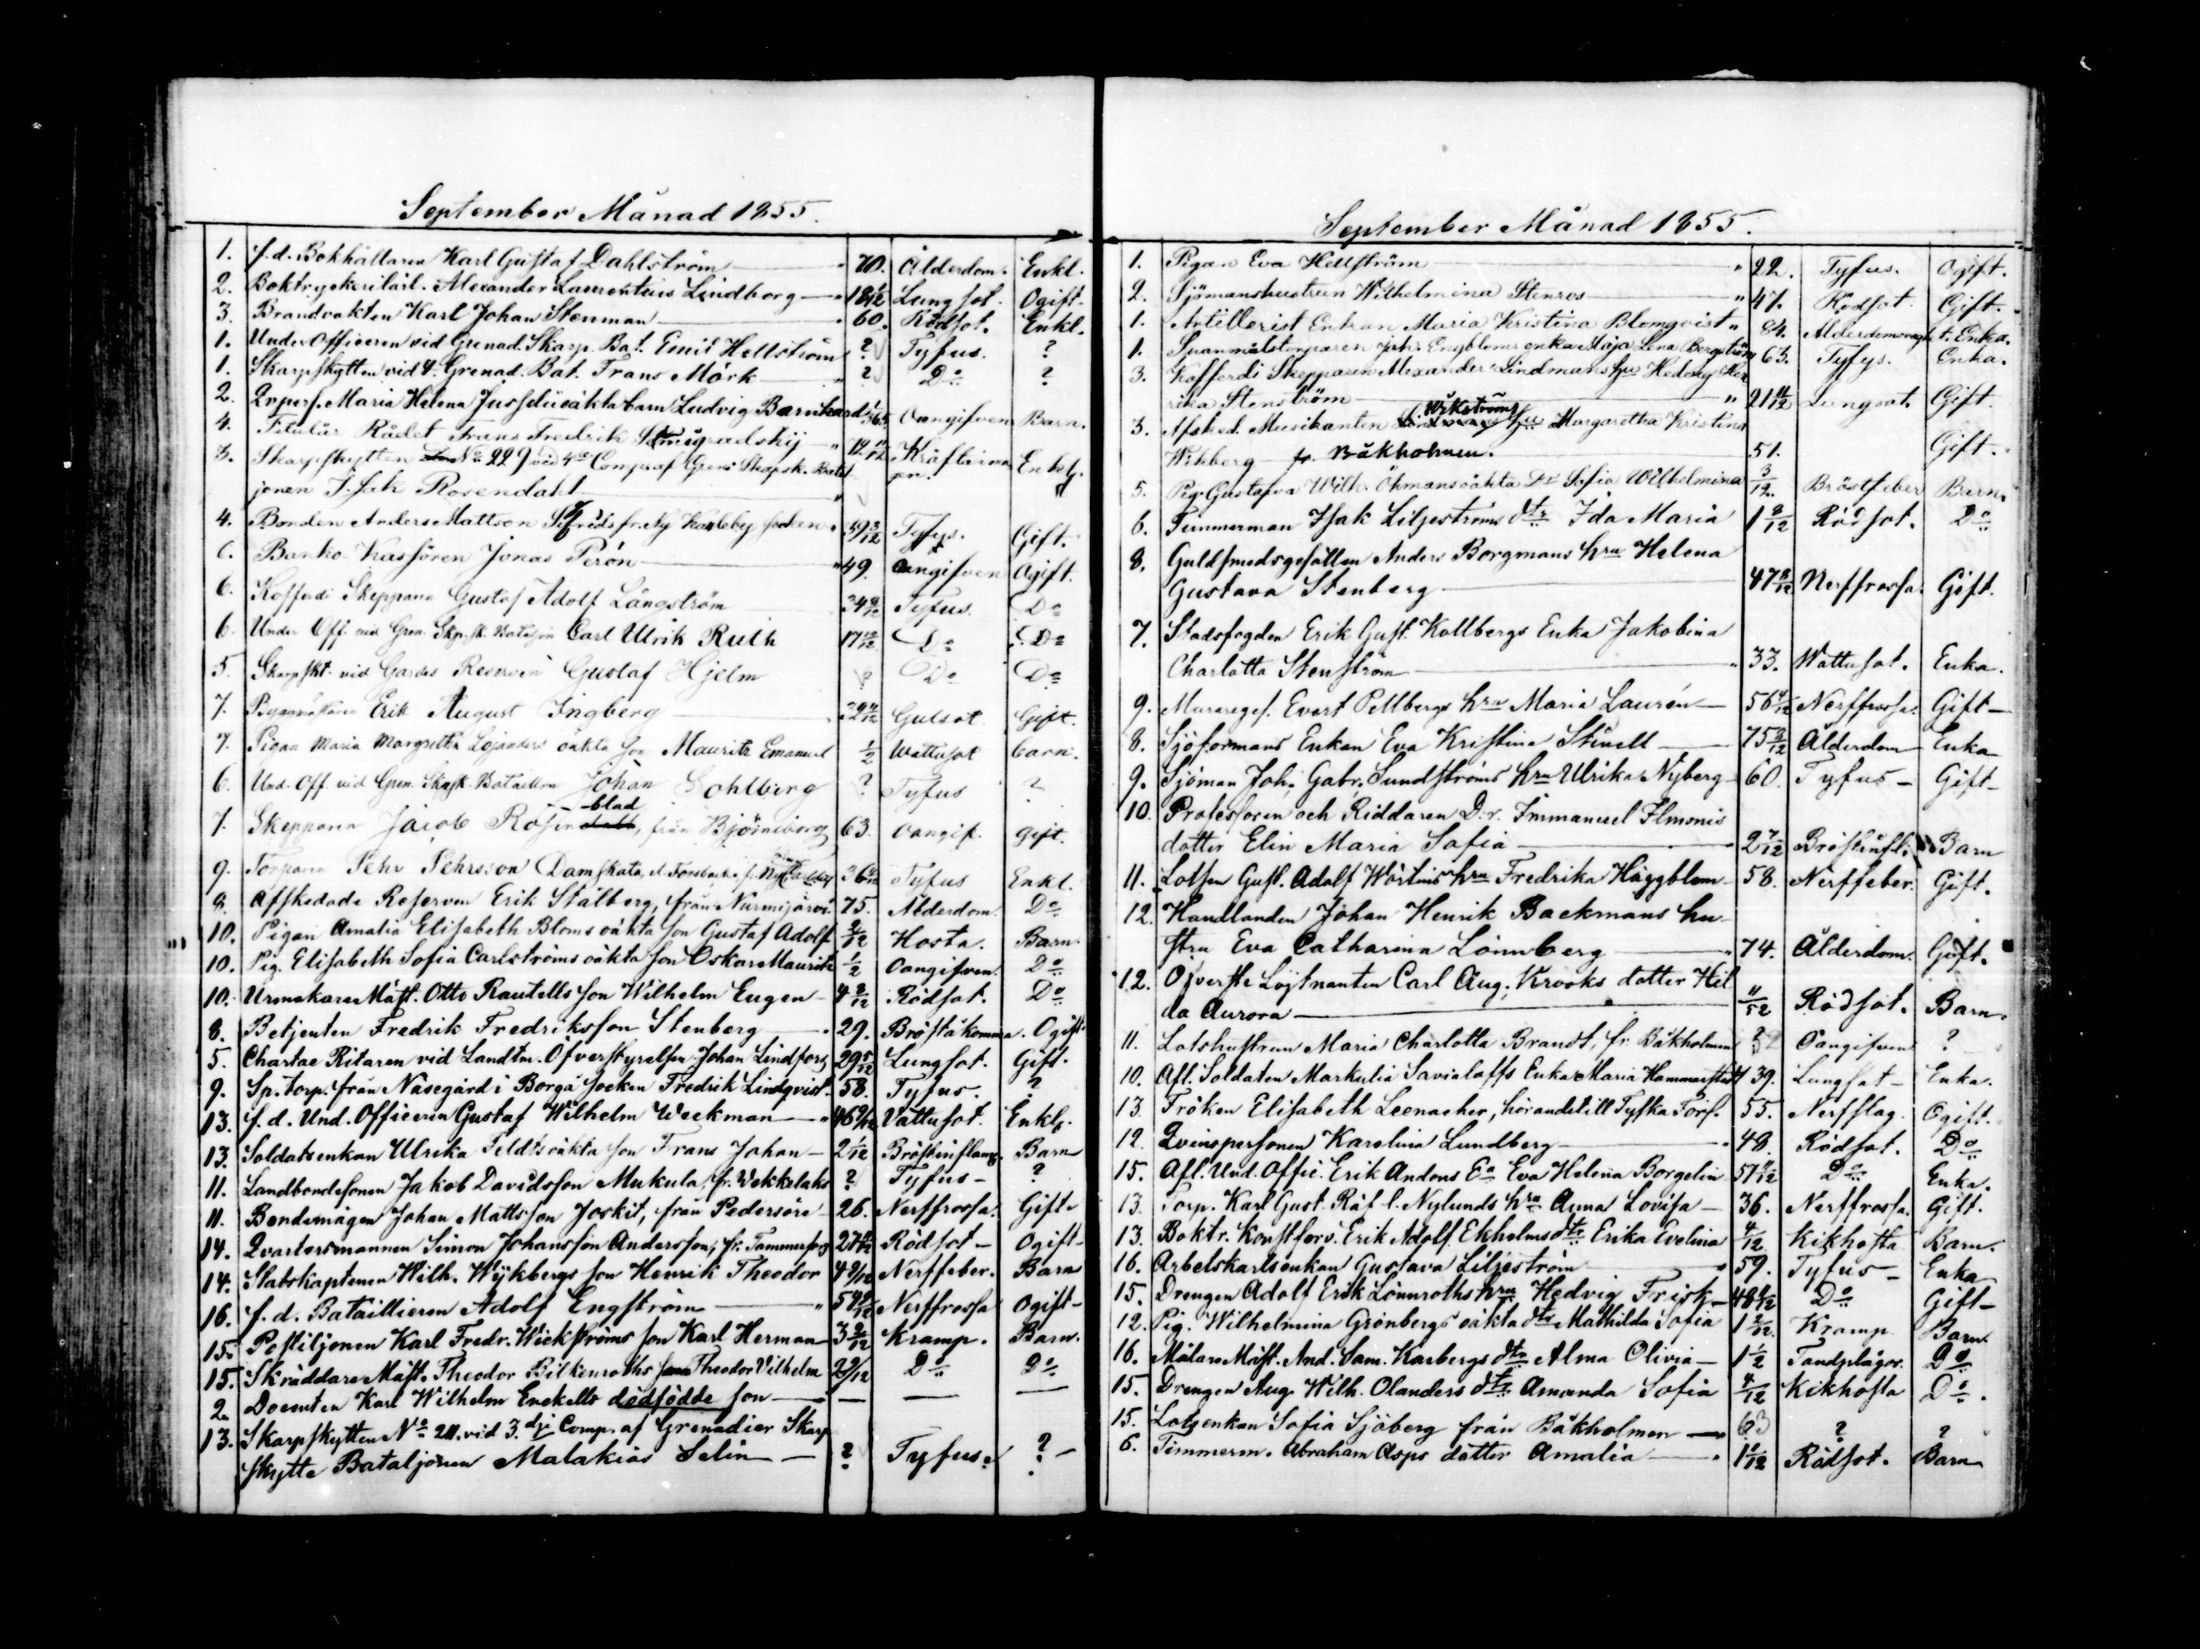 September Månad 1855.
1. f.d. Bokhållaren Karl Gustaf Dahlström — 70. Ålderdom. Enkl.
2. Boktryckerilärl. Alexander Laurentius Lindborg — 18 1/12 Lungsot. Ogift.
3. Brandvakten Karl Johan Stenman — 60. Rödsot. Enkl.
1. Under Officeren vid Grenad. Skarp. Bat. Emil Hellström ? Tyfus. ?
1. Skarpskytten vid 4. Grenad. Bat. Frans Mörk — ? Do ?
2. Qvpers. Maria Helena Jusselii oäkta barn Ludvig Barnhard Oangifven Barn.
4. Titulär Rådet Frans Fredrik
3. Skarpskytten No 229 vid 4de Comp af Gren. Skarpsk. Batal
jonen Isak Rosendahl
4. Bonden Anders Mattson Sigfreds fr. Ny Karleby socken 39 3/12 Tyfus. Gift.
6. Banko Kassören Jonas Perón — 49. Oangifven Ogift.
6. Kofferdi Skepparen Gustaf Adolf Långström Tyfus. Do
6. Under Off. vid Gren. Skp.sk. Bataljon Carl Ulrik Ruth 17 10/12 Do Do
5. Skarpskt. vid Gardes Reserven Gustaf Hjelm ? Do Do
7. Erik August Ingberg — Gulsot Gift.
7. Pigan Maria Margretha Lojanders oäkta son Mauritz Emanuel 1/2 Wattusot barn.
6. Und. Off. vid Gren. Skarpsk. Bataillon Johan Gohlberg ? Tyfus ?
blad
7. Skepparen Jacob Rosendahl, från Björneborg 63. Oangif. Gift.
9. Torparen Pehr Pehrsson Damskata, Tyfus Enkl.
8. Afskedade Reserven Erik Stålberg, från Nurmijärvi. 75. Ålderdom. Do
10. Pigan Amalia Elisabeth Bloms oäkta son Gustaf Adolf 2/12 Hosta. Barn.
10. Pig. Elisabeth Sofia Carlströms oäkta son Oskar Mauritz 1/2 Oangifven. Do
10. Urmakare Mäst. Otto Rautells son Wilhelm Eugen — 4 2/12 Rödsot. Do
8. Betjenten Fredrik Fredriksson Stenberg — 29. Bröståkomma. Ogift.
5. Chartae Ritaren vid Landtm. Öfverstyrelsen Johan Lindfors 29 5/12 Lungsot. Gift.
9. Sp. torp. från Näsegård i Borgå socken Fredrik Lindqvist. 58. Tyfus. ?
13. f.d. Und. Officeren Gustaf Wilhelm Weckman — 46 9/12 Vattusot. Enkl.
13. Soldatsenkan Ulrika Feldts oäkta son Frans Johan — 2 1/12 Bröstinflamg. Barn
11. Landbondesonen Jakob Davidsson Mukula, fr. Wekkelaks ? Tyfus — ?
11. Bondemågen Johan Mattsson Joskit, från Pedersöre — 26. Nerffrossa. Gift.
14. Qvartersmannen Simon Johansson Andersson, fr. Tammerfors Rödsot — Ogift —
14. Stabskaptenen Wilh. Wykbergs son Henrik Theodor 4 9/12 Nerffeber. Barn
16. f.d. Bataillieren Adolf Engström — Nerffrossa Ogift —
15. Postiljonen Karl Fredr. Wickströms son Karl Herman — 3 9/12 Kramp. Barn.
15. Skräddare Mäst. Theodor Bilkenroths son Theodor Vilhelm 2 9/12 Do Do
2. Docenten Karl Wilhelm Enckells dödfödde son — — —
13. Skarpskytten No 211. vid 3. dje Comp. af Grenadier Skarp
skytte Bataljonen Malakias Selin — ? Tyfus. ? —
September Månad 1855.
1. Pigan Eva Hellström — 22. Tyfus. Ogift.
2. Sjömanshustrun Wilhelmina Stenros — 47. Rödsot. Gift.
1. Artillerist Enkan Maria Kristina Blomqvist 84. Enka.
1. Spanmålstorparen Joh. Engbloms enka Maja Lena Bergström 63. Tyfys. Enka.
3. Kofferdi Skepparen Alexander Lindmans hu Hedvig Hen
rika Stenström — 21 11/12 Lungsot. Gift.
Wikströms
3. Afsked. Musikanten hu Margaretha Kristina
Wikberg — fr. Båkholmen. 51. Gift.
5. Pig. Gustafva Wilh. Öhmans oäkta Dr Sofia Wilhelmina 3/12. Bröstfeber Barn.
6. Timmerman Isak Liljeströms dtr Ida Maria 1 8/12 Rödsot. Do
8. Guldsmedsgesällen Anders Borgmans hru Helena
Gustava Stenberg — 47 8/12 Nerffrossa. Gift.
7. Stadsfogden Erik Gust. Kollbergs Enka Jakobina
Charlotta Stenström — 33. Wattusot. Enka.
9. Murereges. Evert Pellbergs hru Maria Laurén — 56 4/12 Nerffrossa. Gift —
8. Sjöformans Enkan Eva Kristina Stinell — 75 3/12 Ålderdom Enka
9. Sjöman Joh. Gabr. Sundströms hru Ulrika Nyberg — 60. Tyfus — Gift —
10. Professoren och Riddaren D:r. Immanuel Ilmonis
dotter Elin Maria Sofia — 2 7/12 Barn
11. Lotsen Gust. Adolf Wörtins hru Fredrika Häggblom — 58. Nerffeber. Gift.
12. Handlanden Johan Henrik Backmans hu
stru Eva Catharina Lönnberg — 74. Ålderdom. Gift.
12. Öfverste Löjtnanten Carl Aug. Krooks dotter Hil
da Aurora — 11/52 Rödsot. Barn.
11. Lotshustrun Maria Charlotta Brandt, fr. Båkholmen Oangifven ?
10. Afl. Soldaten Markulia Savialoffs Enka Maria Hammarstedt 39. Lungsot — Enka.
13. Fröken Elisabeth Leenacher, hörande till Tyska Förs. 55. Nerfslag. Ogift.
12. Qvinspersonen Karolina Lundberg — 48. Rödsot. Do
15. Afl. Und. Offic. Erik Andons Ea Eva Helena Borgelin 57 9/12 Do Enka.
13. Torp. Karl Gust. Räf l. Nylunds hru Anna Lovisa — 36. Nerffrossa. Gift.
13. Boktr. Konstförv. Erik Adolf Ekholms dtr Erika Evelina 4/12 Kikhosta Barn.
16. Arbetskarlsenkan Gustava Liljeström — 59. Tyfus — Enka
15. Drengen Adolf Erik Lönnroths hru Hedvig Frisk — 48 8/12 Do Gift —
12. Pig. Wilhelmina Grönbergs oäkta dtr Mathilda Sofia 1 2/12. Kramp Barn
16. Målare Mäst. And. Sam. Karbergs dtr Alma Olivia — 1 1/2 Tandplågor. Do
15. Drengen Aug. Wilh. Olanders dtr Amanda Sofia 4/12 Kikhosta Do.
15. Lotsenkan Sofia Sjöberg från Båkholmen — 63 ? ?
6. Timmerm. Abraham Asps dotter Amalia — 1 1/12 Rödsot. Barn